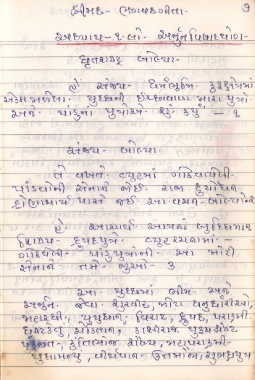 શ્રીમદ્ - ભગવદ્ગીતા ૧
અધ્યાય - ૧ લો. અર્જુનવિષાદયોગ
ધૃતરાષ્ટ્ર બોલ્યા-
હે સંજય- ધર્મભૂમિ કુરુક્ષેત્રમાં
એકઠા મળેલા યુદ્ધની ઈચ્છાવાળા મારા પુત્રો
અને પાંડુના પુત્રોએ શું કર્યું - ૧
સંજય - બોલ્યા.
તે વખતે વ્યૂહમાં ગોઠવાયેલી
પાંડવોની સેનાને જોઈ રાજા દુર્યોધન
દ્રોણાચાર્ય પાસે જઈ આ વચન બોલ્યો ૨
હે આચાર્ય આપના બુદ્ધિમાન
શિષ્ય - દ્રુપદપુત્ર વ્યૂહરચનામાં -
ગોઠવેલી પાંડુપુત્રોની આ મોટી
સેનાને તમે જુઓ ૩
આ યુદ્ધમાં ભીમ અને
અર્જુન જેવા શૂરવીર, મોટા ધનુર્ધારીઓ,
મહારથી, યુયુધાન, વિરાટ, દ્રુપદ, પરાક્રમી
ધૃષ્ટકેતુ, ચેકિતાન, કાશીરાજ
કુન્તિભોજ શૈબ્ય, મહાપરાક્રમી
યુધામન્યુ, ઉત્તમૌજા, સુભદ્રાપુત્ર